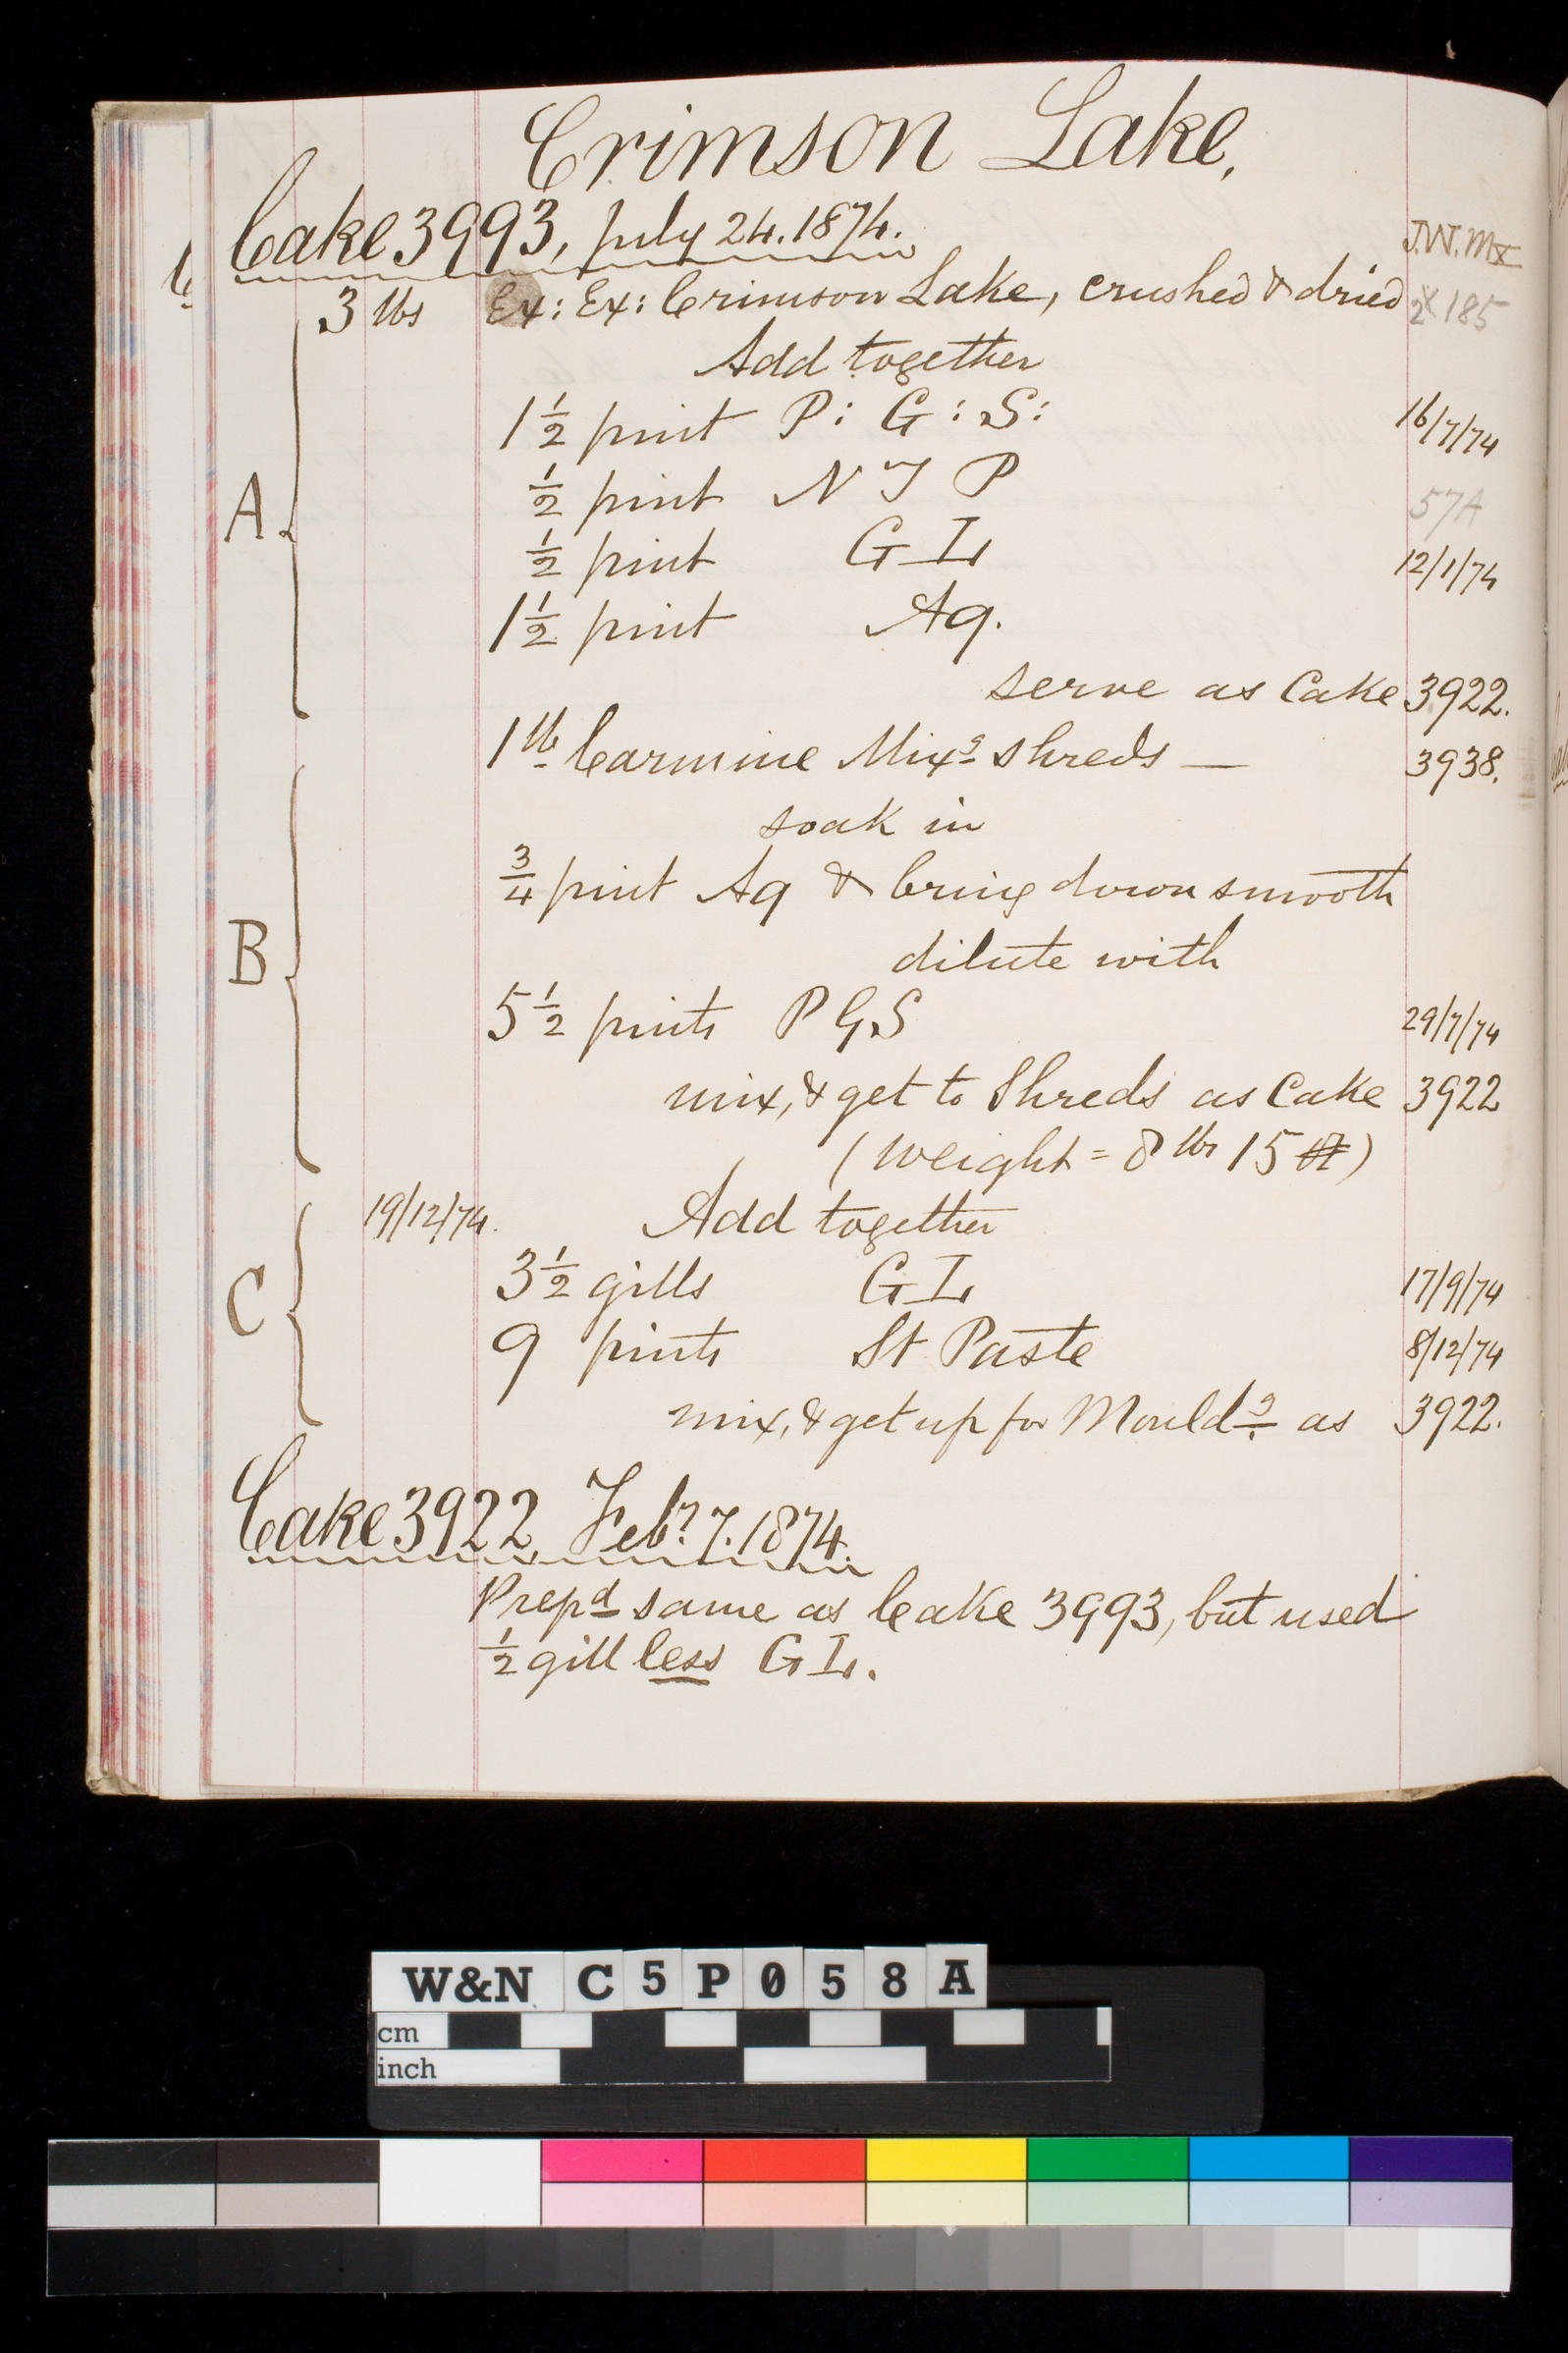 Crimson Lake,
Cake 3993, July 24. 1874.
J.W.Mx
3 lbs Ex: Ex: Crimson Lake, crushed & dried 2X 185
Add together
1 1/2 pint P: G: S: 16/7/74
1/2 pint N J P 57A
A 1/2 pint G L 12/1/74
1 1/2 pint Aq.
serve as Cake 3922.
1 lb Carmine Mixg shreds — 3938.
soak in
3/4 pint Aq & bring down smooth
B dilute with
5 1/2 pints P G S 29/7/74
mix, & get to Shreds as Cake 3922
(weight = 8 lbs 15
19/12/74. Add together
C 3 1/2 gills G L 17/9/74
9 pints St Paste 8/12/74
mix, & get up for Mouldg as 3922.
Cake 3922, Feby 7. 1874.
Prepd same as Cake 3993, but used
1/2 gill less G L.
W&N C5P058A
cm
inch